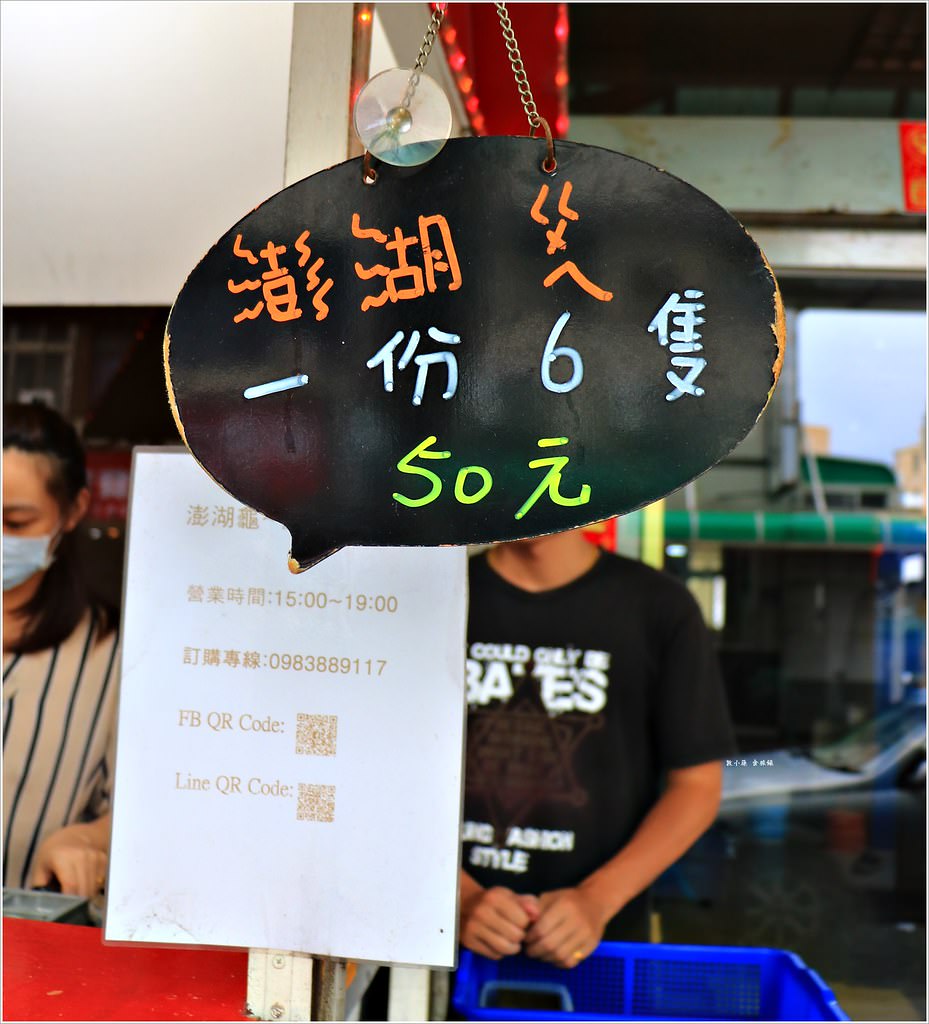 澎湖ㄍㄨㄟ
一份6隻
50元
澎湖龜
營業時間:15:00~19:00
訂購專線:0983889117
FB QR Code:
Line QR Code:
COULD ONLY BE
STYLE